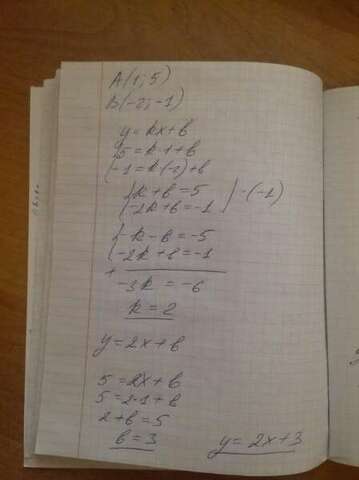 A(1; 5)
B(-2; -1)
y=kx+b
{5=k·1+b
{-1=k(-2)+b
{k+b=5 | ·(-1)
{-2k+b=-1
{-k-b=-5
{-2k+b=-1
+
-3k=-6
k=2
y=2x+b
5=2x+b
5=2·1+b
2+b=5
b=3
y=2x+3